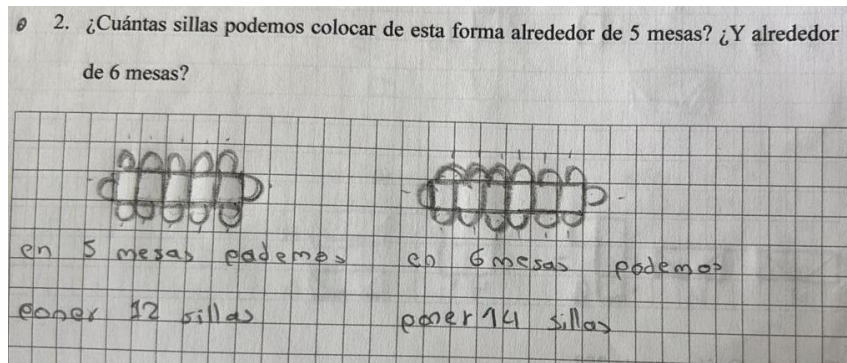 2. ¿Cuántas sillas podemos colocar de esta forma alrededor de 5 mesas? ¿Y alrededor
de 6 mesas?
en 5 mesas pademos
poner 12 sillas
en 6 mesas podemos
poner 14 sillas